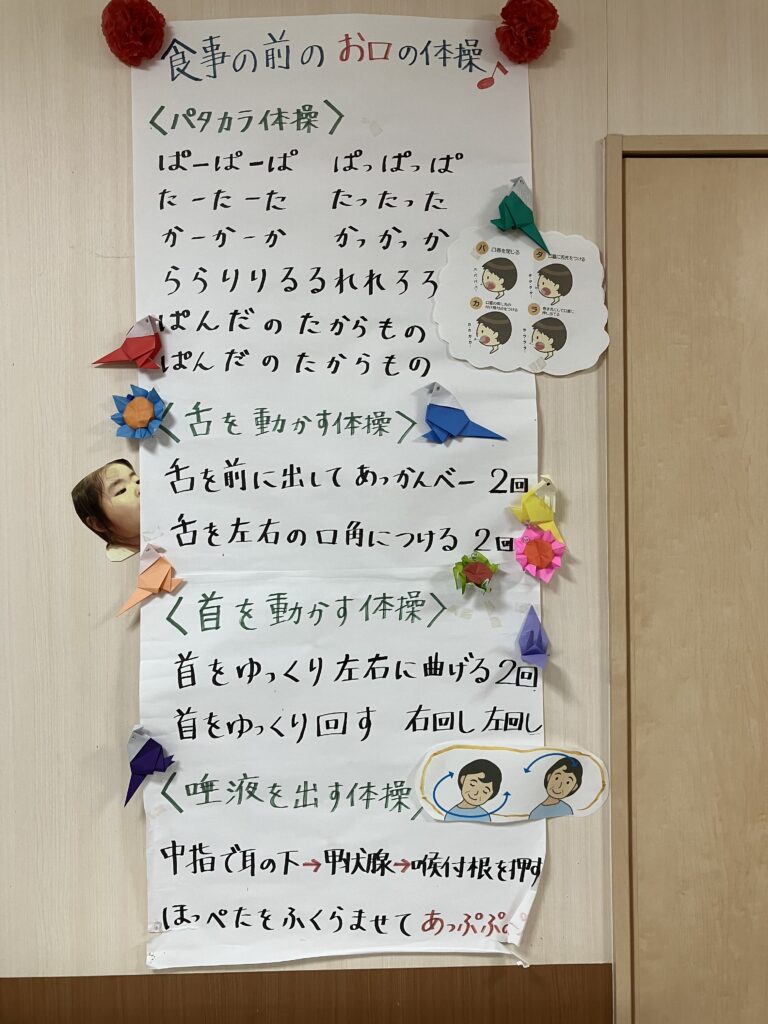 食事の前のお口の体操♪
〈パタカラ体操〉
ぱーぱーぱ ぱっぱっぱ
たーたーた たったった
かーかーか かっかっか
ららりりるるれれろろ
ぱんだのたからもの
ぱんだのたからもの
パ 口唇を閉じる
タ 口蓋に舌先をつける
カ
ラ
〈舌を動かす体操〉
舌を前に出してあっかんべー 2回
舌を左右の口角につける 2回
〈首を動かす体操〉
首をゆっくり左右に曲げる2回
首をゆっくり回す 右回し 左回し
〈唾液を出す体操
中指で耳の下→甲状腺→喉付根を押す
ほっぺたをふくらませて あっぷぷ